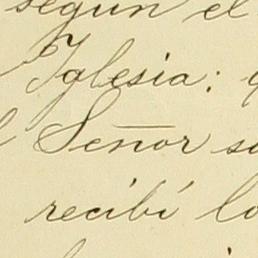 según el
Iglesia:
Señor
recibí